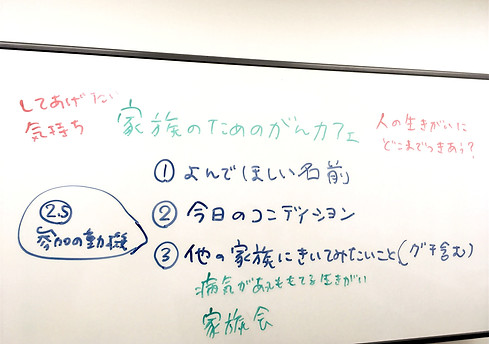 してあげたい
気持ち
家族のためのがんカフェ
人の生きがいに
どこまでつきあう?
① よんでほしい名前
② 今日のコンディション
②.5
参加の動機
③ 他の家族にきいてみたいこと(グチ含む)
病気があってももてる生きがい
家族会